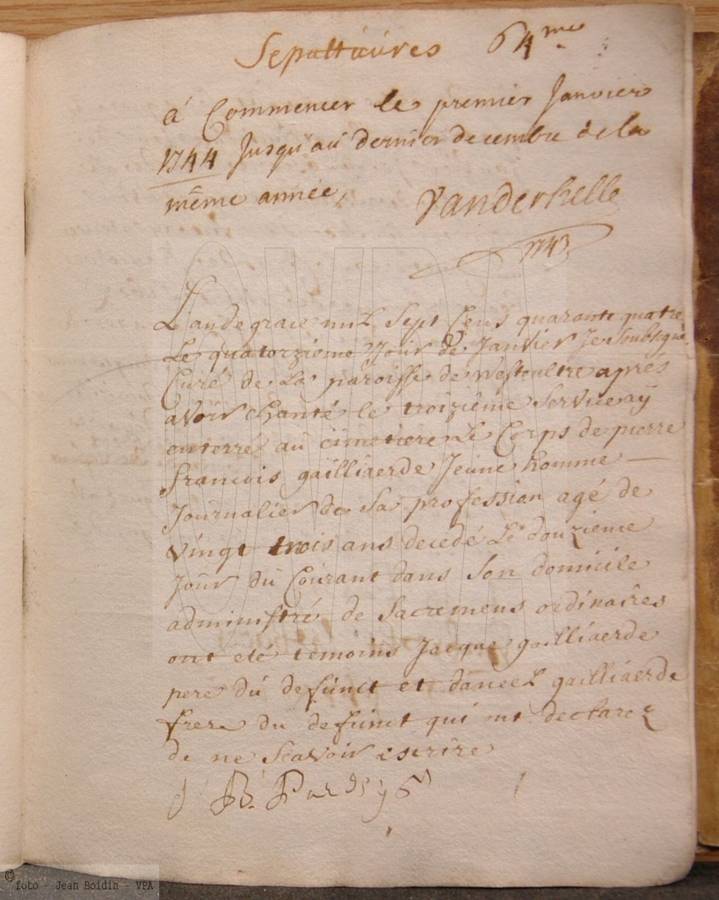 Sepultuures 64me
á Commencer le premier Janvier
1744 Jusqu'au dernier decembre de la
même année,
Vanderhelle
1743
L'an de grace mil Sept Cens quarante quatre
Le quatorzième Jour de Janvier Je Soubsgné
Curé de La paroisse de Westoultre aprés
avoir chanté le troizième Service aÿ
enterré au cimetiere Le Corps de pierre
francois gailliaerde Jeune homme
Journalier de Sa profession agé de
vingt trois ans decedé Le douzieme
Jour du Courant dans Son domicile
administré de Sacremens ordinaires
ont eté temoins Jacque gailliaerde
pere du defunct et daneel gailliaerde
frere du defunct qui ont declarez
de ne Scavoir escrire
© foto - Jean Boidin - VPA